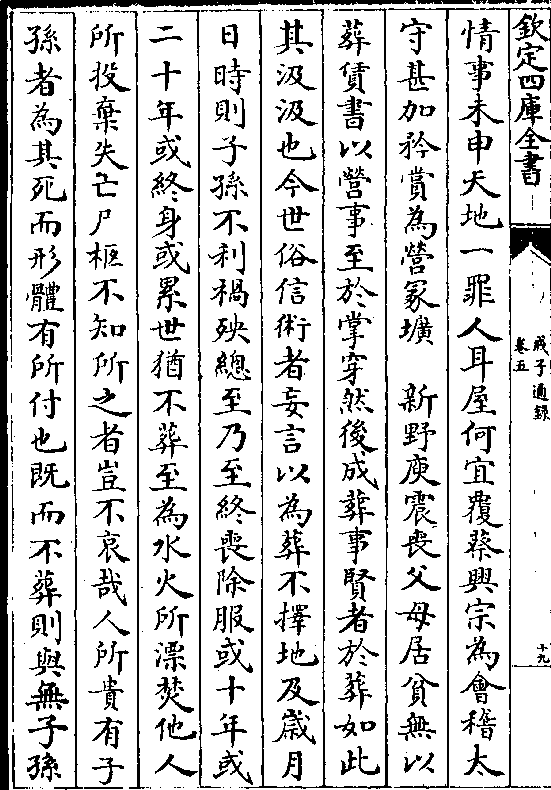 欽定四庫全書
戒子通録
卷五
十九
情事未申天地一罪人耳屋何宜覆蔡興宗為會稽太
守甚加矜賞為營冢壙　新野庾震喪父母居貧無以
葬賃書以營事至於掌穿然後成葬事賢者於葬如此
其汲汲也今世俗信術者妄言以為葬不擇地及歳月
日時則子孫不利禍殃總至乃至終喪除服或十年或
二十年或終身或累世猶不葬至為水火所漂焚他人
所投棄失亡尸柩不知所之者豈不哀哉人所貴有子
孫者為其死而形體有所付也既而不葬則與無子孫